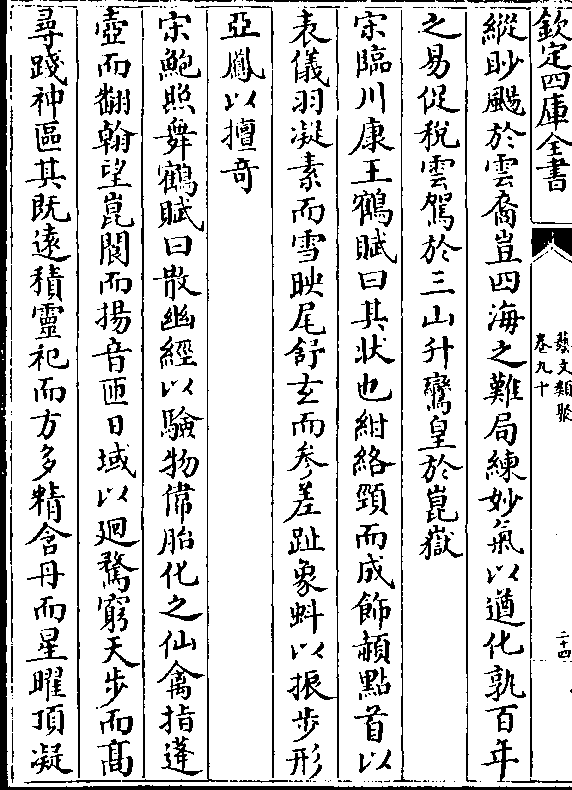 欽定四庫全書
藝文類聚
卷九十
二十四
縱眇颺於雲裔豈四海之難局練妙氣以遒化孰百年
之易促稅雲駕於三山升鸞皇於崑嶽
宋臨川康王鶴賦曰其狀也紺絡頸而成飾赬點首以
表儀羽凝素而雪映尾舒玄而參差趾象虯以振步形
亞鳳以擅奇
宋鮑照舞鶴賦曰散幽經以驗物偉胎化之仙禽指蓬
壺而翻翰望崑閬而揚音匝日域以廻騖窮天步而高
尋踐神區其既遠積靈祀而方多精含丹而星曜頂凝